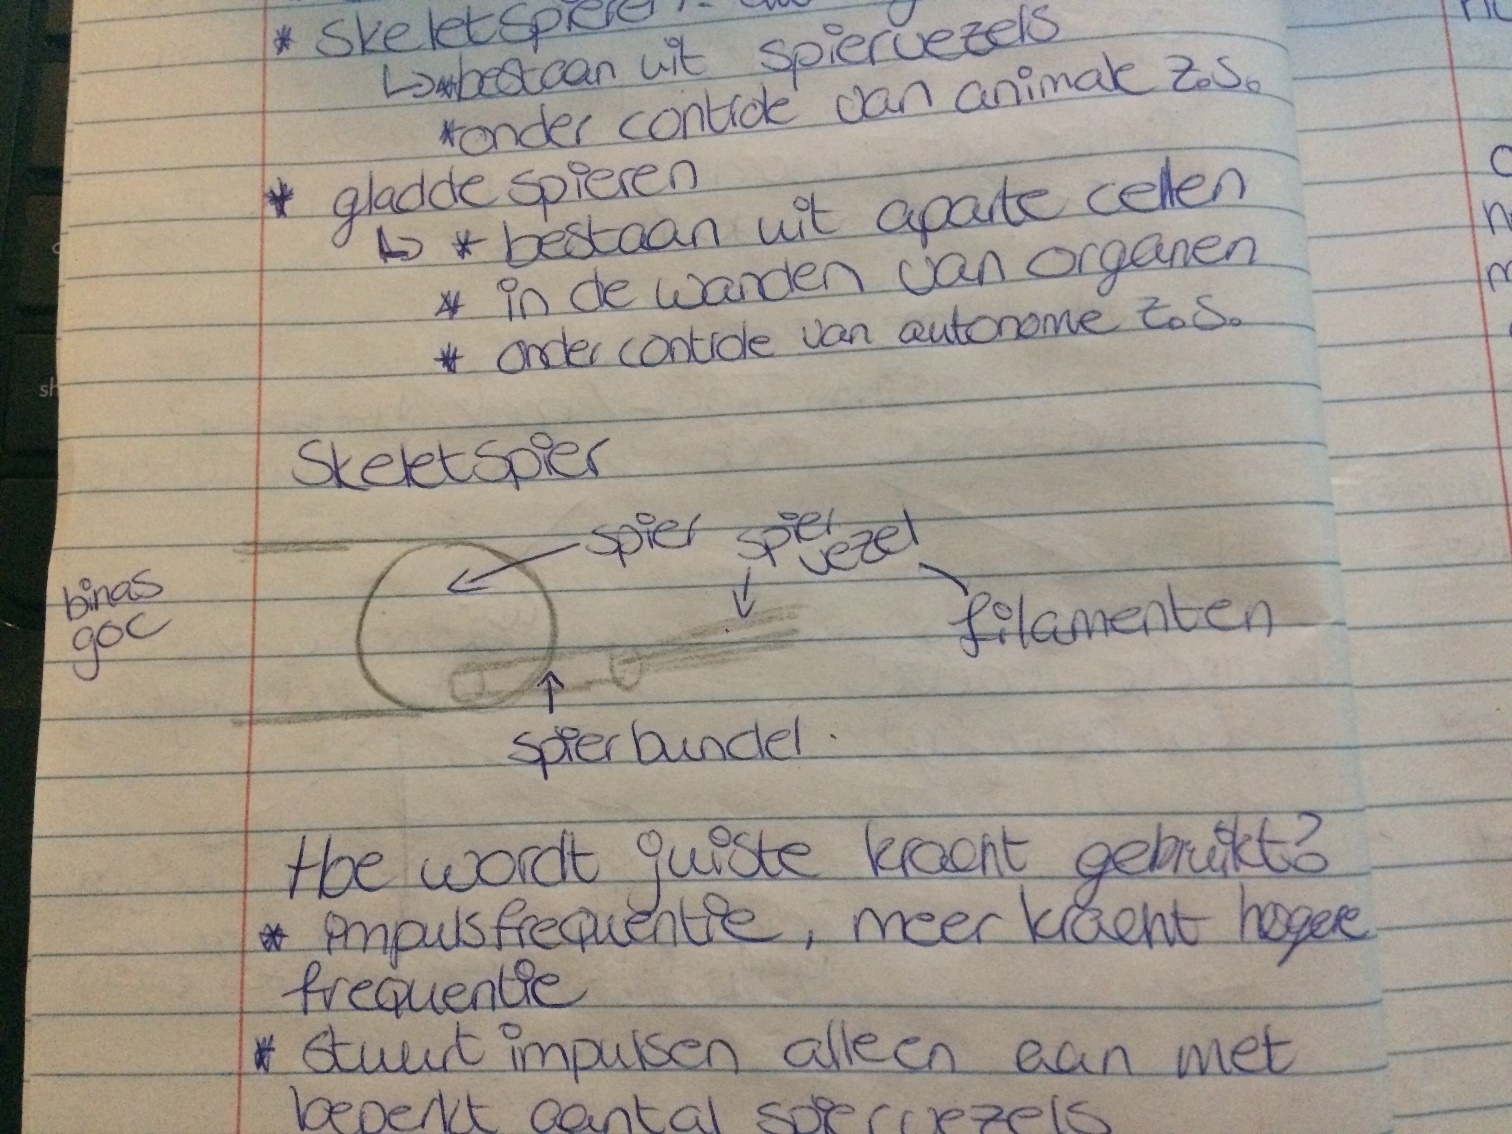 * skeletspieren:
↳ * bestaan uit spiervezels
* onder controle van animale z.s.
* gladde spieren
↳ * bestaan uit aparte cellen
* in de wanden van organen
* onder controle van autonome z.s.
Skeletspier
spier
spier
vezel
binas
90C
filamenten
spierbundel
Hoe wordt juiste kracht gebruikt?
* impulsfrequentie, meer kracht hogere
frequentie
* stuurt impulsen alleen aan met
beperkt aantal spiervezels